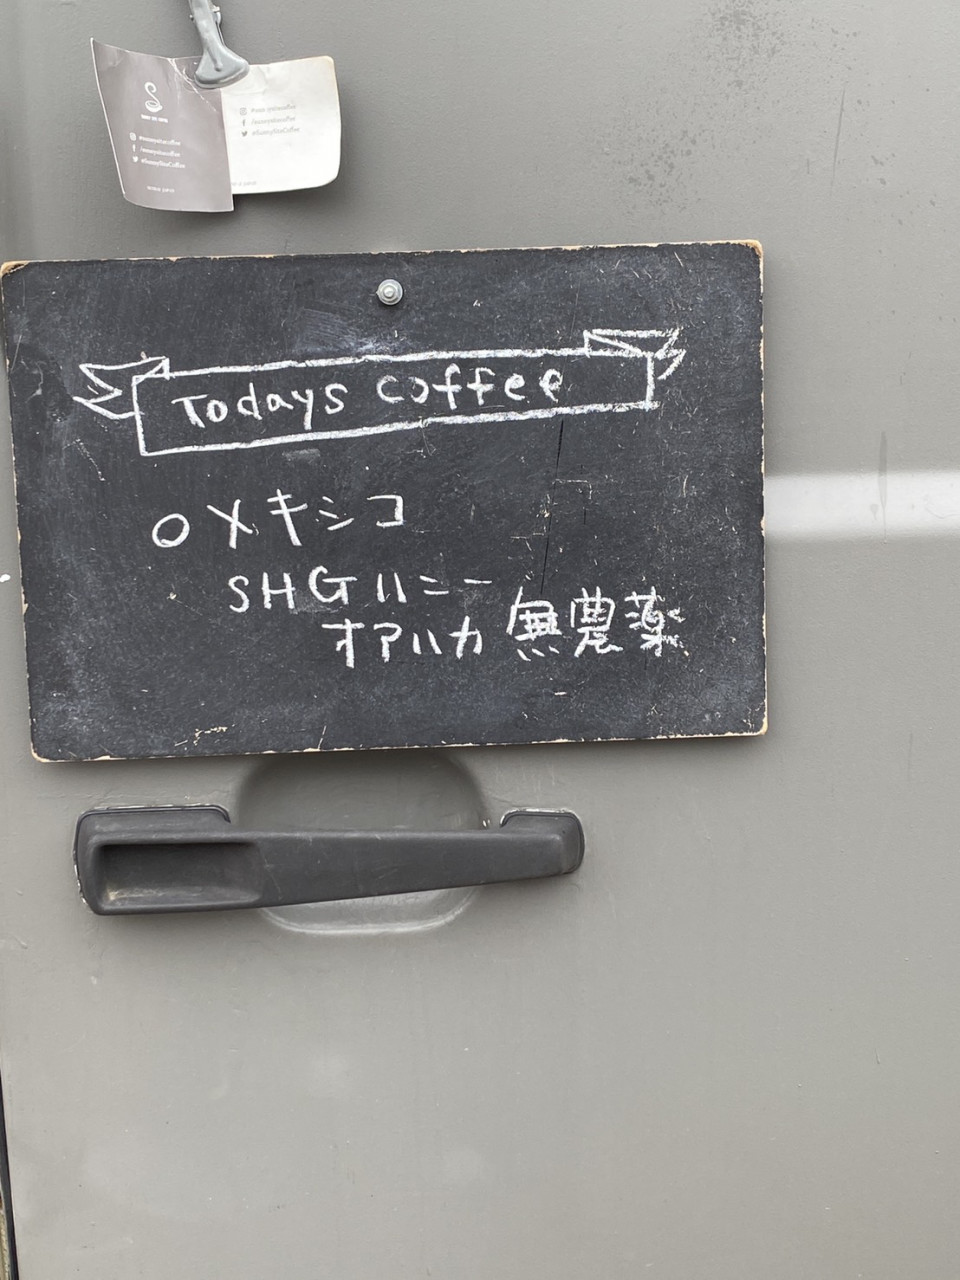 Todays coffee
○メキシコ
SHGハニー
オアハカ 無農薬
/sunnysitecoffee
@SunnySiteCoffee
@SunnySiteCoffee